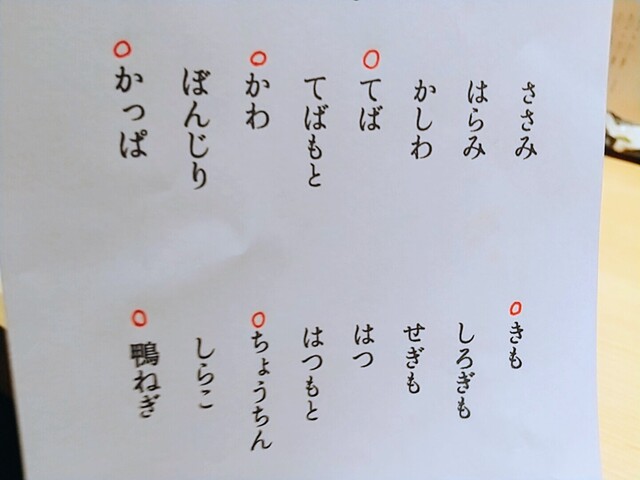 ささみ
はらみ
かしわ
○てば
てばもと
○かわ
ぼんじり
○かっぱ
○きも
しろぎも
せぎも
はつ
はつもと
○ちょうちん
しらこ
○鴨ねぎ